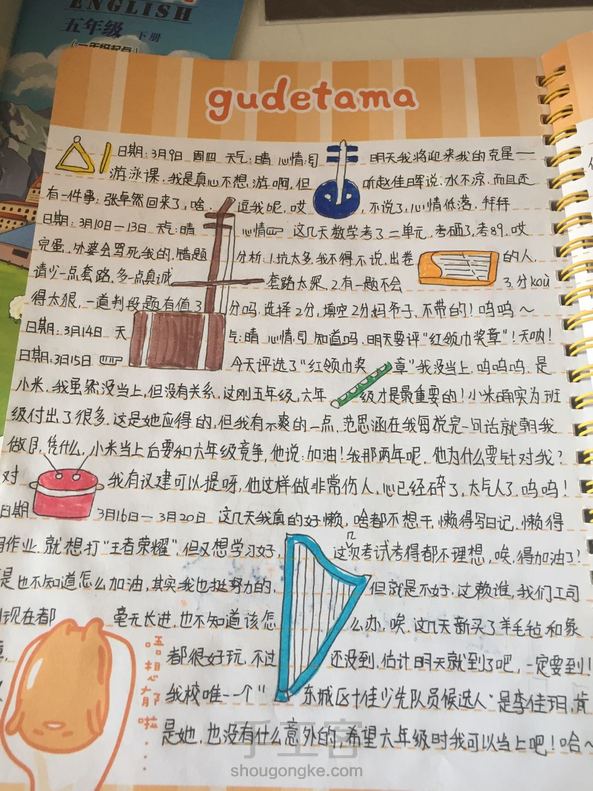 ENGLISH
五年级 下册
(一年级起点)
gudetama
日期:3月9日 周四 天气:晴 心情: 明天我将迎来我的克星一
游泳课,我是真心不想游啊,但 听赵佳晖说:水不凉,而且还
有一件事:张卓然回来了,啥, 逗我呢,哎 ,不说了,心情低落,拜拜
日期:3月10日—13日 天气:晴 心情 这几天数学考了一单元,考砸了,考89,哎
完蛋,外婆会骂死我的,错题 分析:1.坑太多,我不得不说,出卷 的人,
请少一点套路,多一点真诚 套路太深,2.有一题不会 3.分kou
得太狠,一道判段题有值3 分吗,选择2分,填空2分好爷了,不带的!呜呜~
日期:3月14日 天 气:晴 心情: 知道吗,明天要评"红领巾奖章"!天呐!
日期:3月15日 今天评选了"红领巾奖 章"我没当上,呜呜呜,是
小米,我虽然没当上,但没有关系,这刚五年级,六年 级才是最重要的!小米确实为班
级付出了很多,这是她应得的,但我有不爽的一点,范思涵在我每说完一句话就朝我
做 ,凭什么,小米当上后要和六年级竞争,他说:加油!我那两年呢,他为什么要针对我?
对 我有议建可以提呀,他这样做非常伤人,心已经碎了,太气人了,呜呜!
日期 3月16日—3月20日 这几天我真的好懒,啥都不想干,懒得写日记,懒得
作业,就想打"王者荣耀",但又想学习好, 这次几考试考得都不理想,唉,得加油了!
是也不知道怎么加油,其实我也挺努力的, 但就是不好,这赖谁,我们工司
现在都 毫无长进,也不知道该怎 么办,唉,这几天新买了羊毛毡和象
都很好玩,不过 还没到,估计明天就到了吧,一定要到!
我校唯一一个" 东城区十佳少先队员候选人"是李佳玥,肯
是她,也没有什么意外的,希望六年级时我可以当上吧!哈~
唔想郁啦......
手工客
shougongke.com